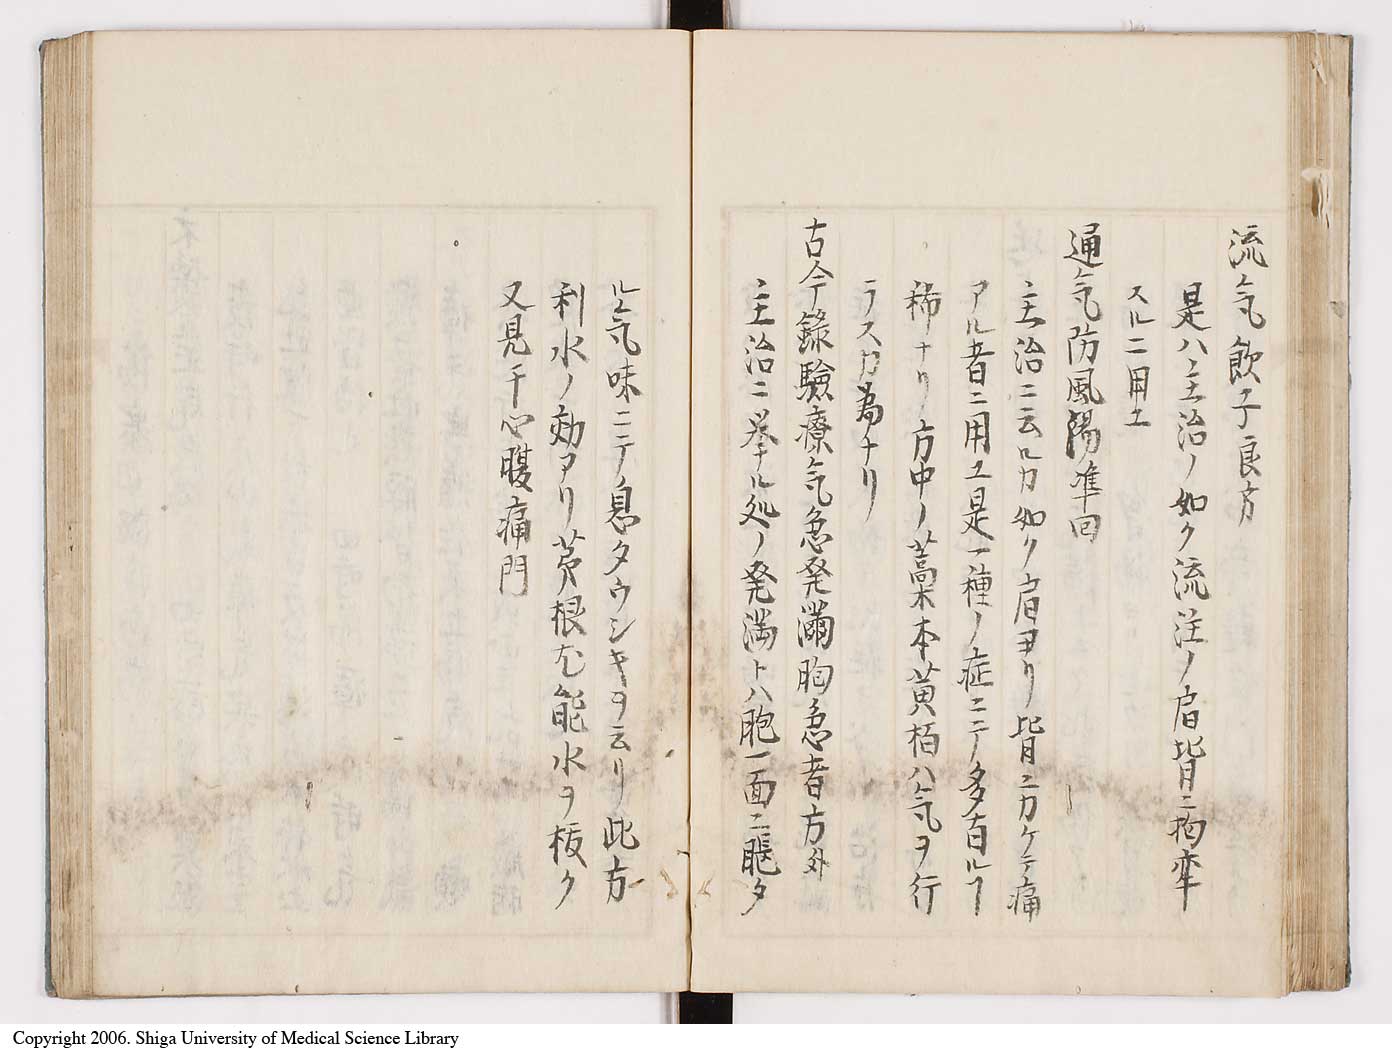 流気飲子良方
是ハ主治ノ如ク流注ノ肩背ニ拘牽
スルニ用エ
通気防風湯準回
主治ニ云ルカ如ク肩ヨリ背ニカケテ痛
アル者ニ用ユ是一種ノ症ニテノ多有ルヿ
稀ナリ方中ノ藁本黄栢ハ気ヲ行
ラスカ為ナリ
古今録験療気急発満胸急者方外
主治ニ挙ル処ノ発満トハ胞一面ニ脹タ
ル気味ニテノ息タウシキヲ云リ此方
利水ノ効アリ芦根尤能水ヲ抜ク
又見千心腹痛門
Copyright 2006. Shiga University of Medical Science Library